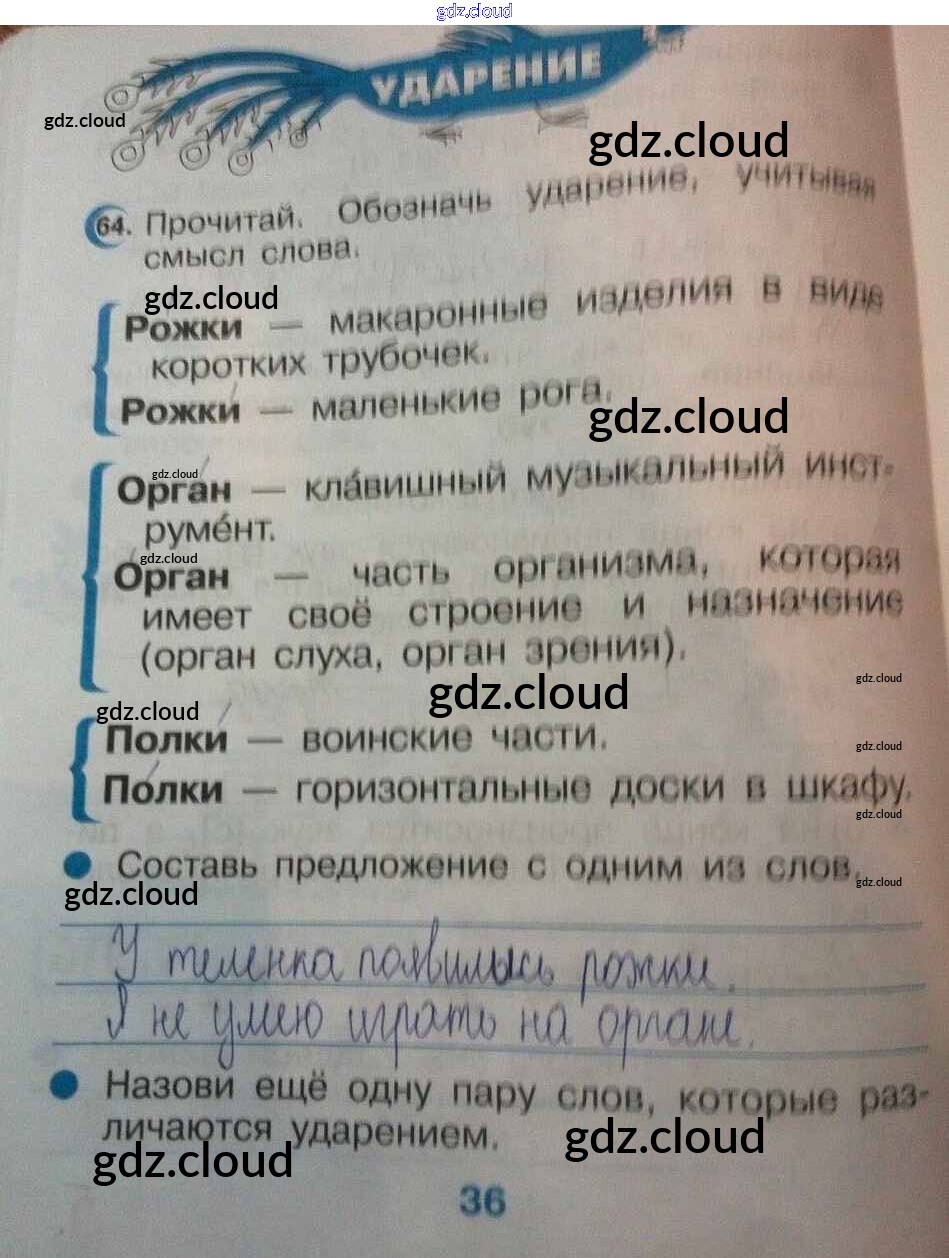 gdz.cloud
УДАРЕНИЕ
gdz.cloud
gdz.cloud
64. Прочитай. Обозначь ударение, учитывая
смысл слова.
gdz.cloud
Рожки — макаронные изделия в виде
коротких трубочек.
Рожки́ — маленькие рога.
gdz.cloud
gdz.cloud
Орга́н — кла́вишный музыкальный инст-
руме́нт.
gdz.cloud
О́рган — часть организма, которая
имеет своё строение и назначение
(орган слуха, орган зрения).
gdz.cloud
gdz.cloud
gdz.cloud
Полки́ — воинские части.
gdz.cloud
По́лки — горизонтальные доски в шкафу.
gdz.cloud
Составь предложение с одним из слов.
gdz.cloud
gdz.cloud
У теленка появились рожки.
Я не умею играть на органе.
Назови ещё одну пару слов, которые раз-
личаются ударением.
gdz.cloud
gdz.cloud
36